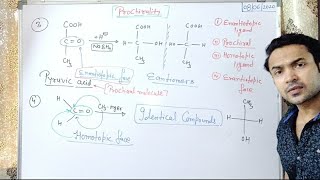 Prochirality
08/06/2020
③
COOH
C=O
CH₃
+H⊖
NaBH₄
COOH
H
OH
CH₃
COOH
HO
H
CH₃
① Enantiotopic
ligand
② Prochiral
③ Homotopic
ligand
④ Enantiotopic
face
Enantiotopic face
Enantiomers
Pyruvic acid
Prochiral molecule?
④
H
C=O
H
CH₃-MgBr
Identical Compounds
CH₃
H
H
OH
Homotopic face